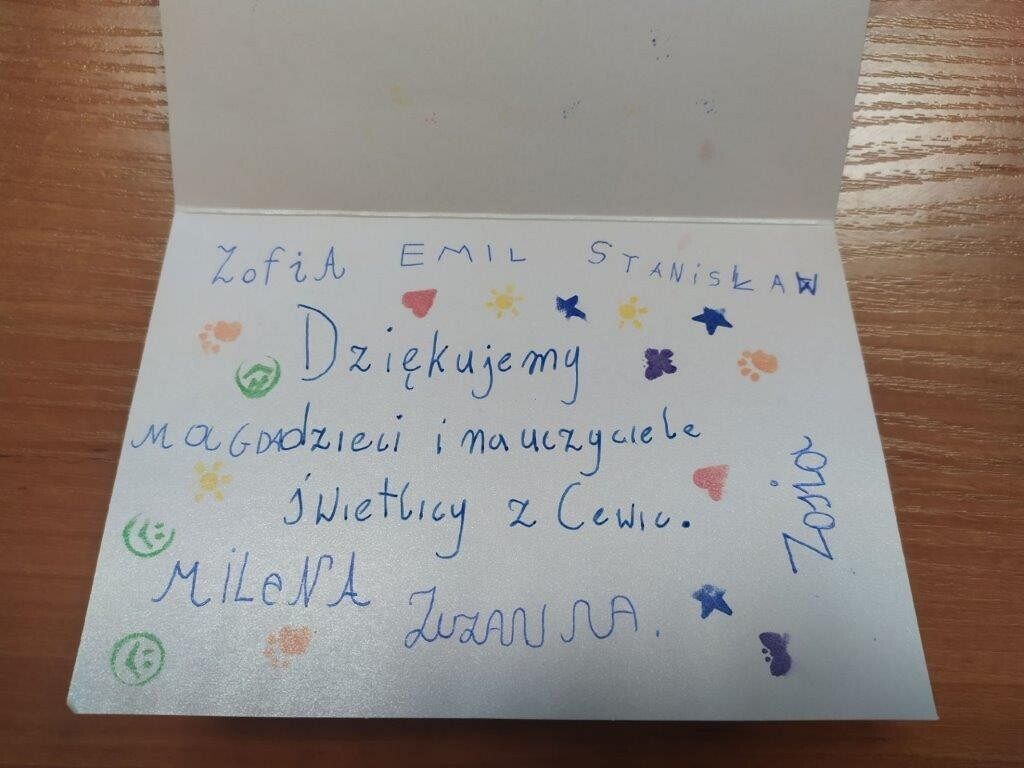 ZofiA EMIL STANiSŁAW
Dziękujemy
MAGDA dzieci i nauczyciele
świetlicy z Cewic.
Zosia
MiLeNA
ZUZANNA.